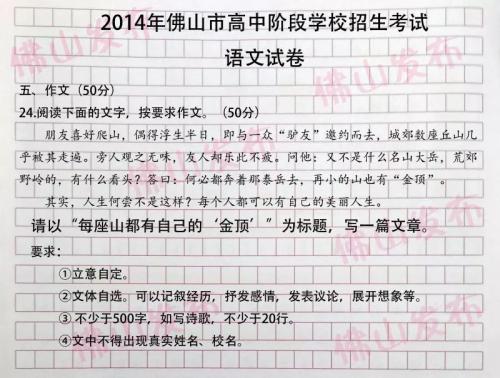 2014年佛山市高中阶段学校招生考试
语文试卷
五、作文(50分)
24.阅读下面的文字，按要求作文。（50分）
朋友喜好爬山，偶得浮生半日，即与一众“驴友”邀约而去，城郊数座丘山几
乎被其走遍。旁人观之无味，友人却乐此不疲。问他：又不是什么名山大岳，荒郊
野岭的，有什么看头？答曰：何必都奔着那泰岳去，再小的山也有“金顶”。
其实，人生何尝不是这样？每个人都可以有自己的美丽人生。
请以“每座山都有自己的‘金顶’”为标题，写一篇文章。
要求：
①立意自定。
②文体自选。可以记叙经历，抒发感情，发表议论，展开想象等。
③不少于500字，如写诗歌，不少于20行。
④文中不得出现真实姓名、校名。
佛山发布
佛山发布
佛山发布
佛山发布